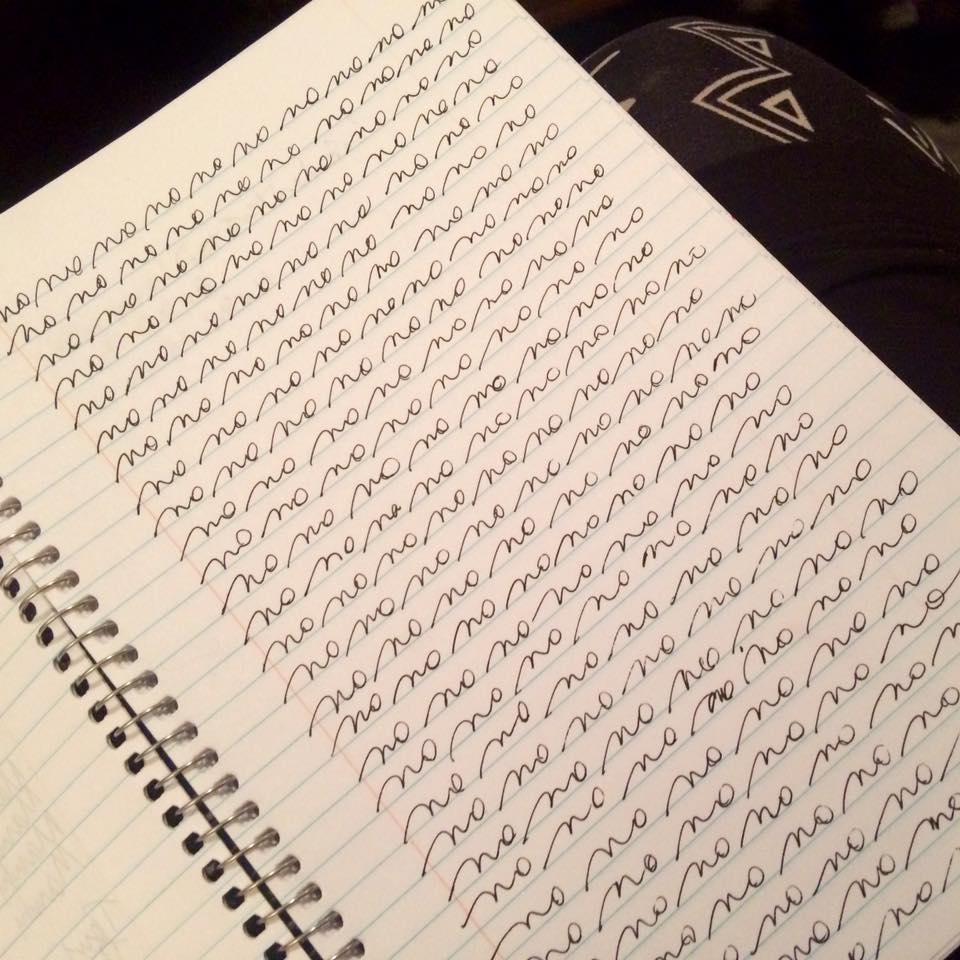 no no no no no no no no no no
no no no no no no no no no no
no no no no no no no no no
no no no no no no no no no
no no no no no no no no no
no no no no no no no no no
no no no no no no no no no
no no no no no no no no no
no no no no no no no no no
no no no no no no no no no
no no no no no no no no no
no no no no no no no no no
no no no no no no no no no
no no no no no no no no no
no no no no no no no no no
no no no no no no no no no
no no no no no no no no
no no no no no no no no
no no no no no no no no
no no no no no no no no
no no no no no no no no
no no no no no no no no
no no no no no no no
no no no no no no no
no no no no no no
no no no no no
no no no no
no no no
no